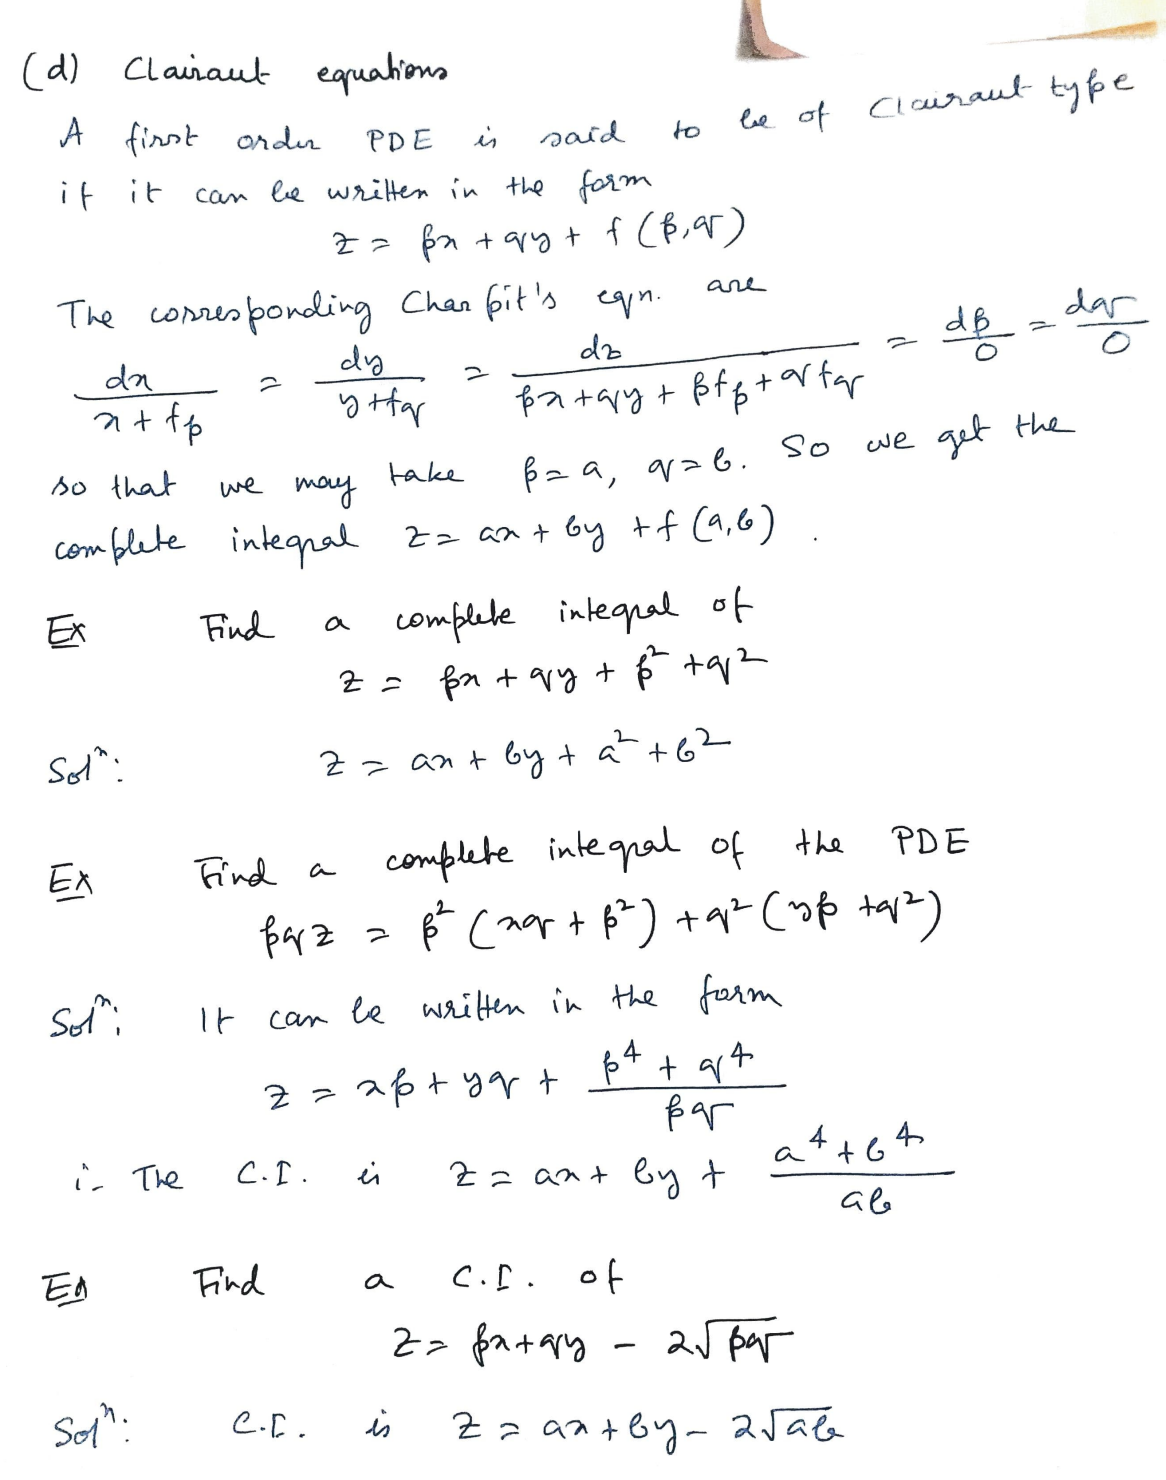 (d) Clairaut equations
A first order PDE is said to be of Clairaut type
if it can be written in the form
z = px + qy + f(p,q)
The corresponding Charpit's eqn. are
dx/(x + fp) = dy/(y + fq) = dz/(px + qy + pfp + qfq) = dp/0 = dq/0
so that we may take p = a, q = b. So we get the
complete integral z = ax + by + f(a,b).
Ex Find a complete integral of
z = px + qy + p² + q²
Solⁿ: z = ax + by + a² + b²
Ex Find a complete integral of the PDE
pqz = p²(xq + p²) + q²(yp + q²)
Solⁿ: It can be written in the form
z = xp + yq + (p⁴ + q⁴)/pq
∴ The C.I. is z = ax + by + (a⁴ + b⁴)/ab
Ex Find a C.I. of
z = px + qy - 2√pq
Solⁿ: C.I. is z = ax + by - 2√ab